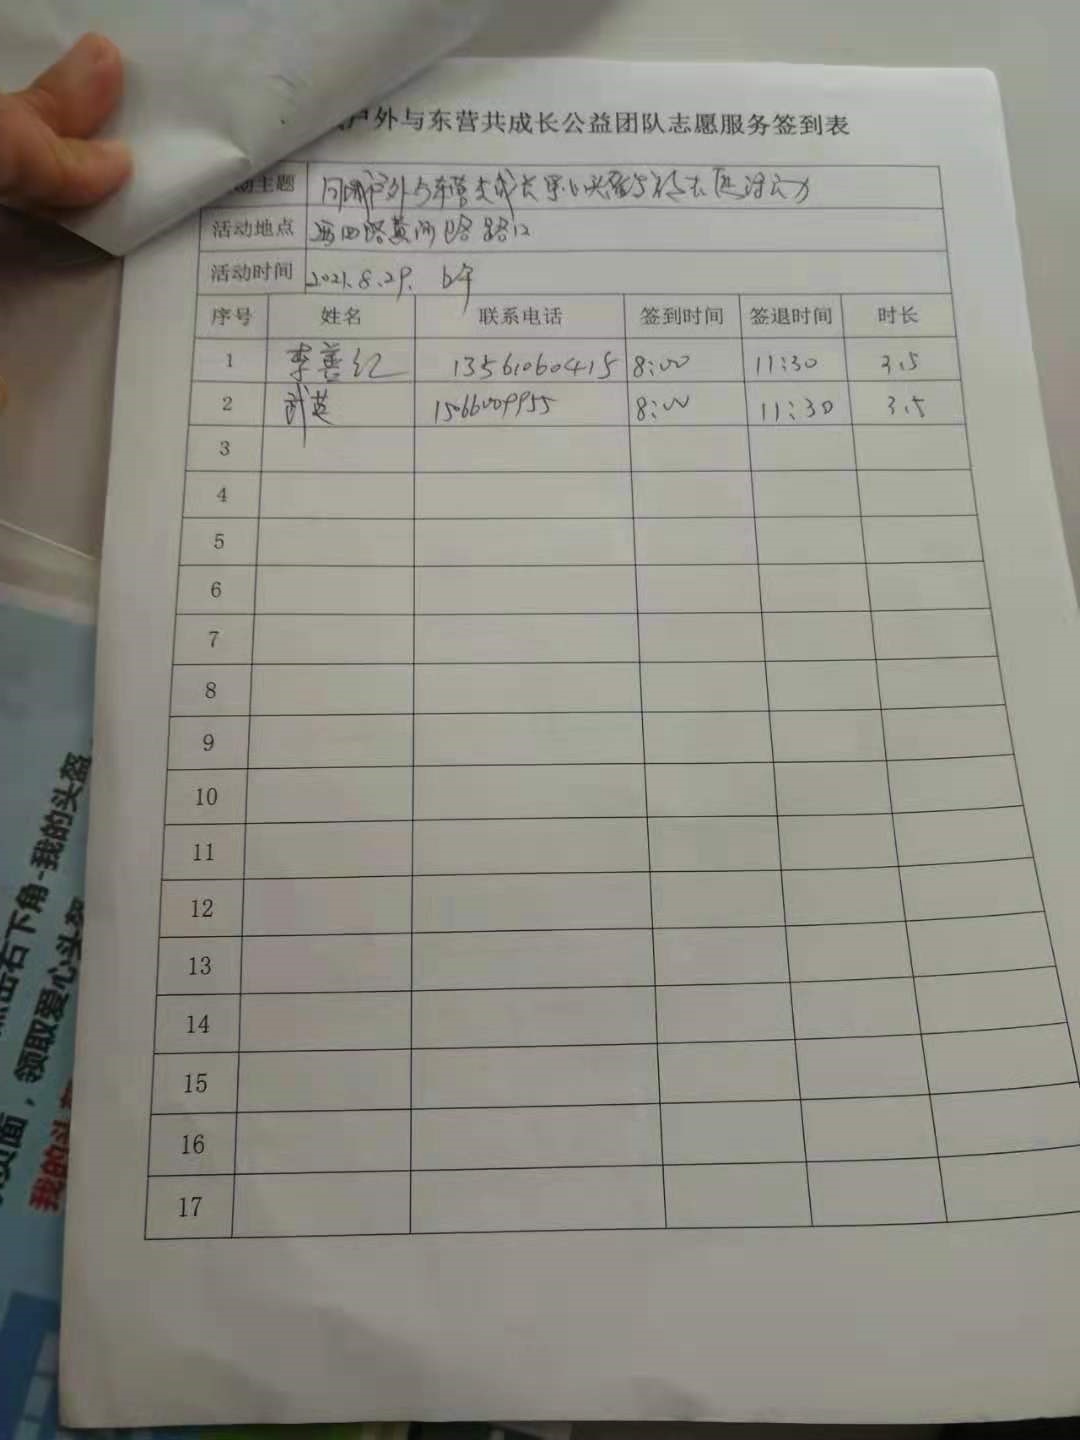 户外与东营共成长公益团队志愿服务签到表
动主题 户外与东营共成长
活动地点 西四路黄河路路口
活动时间 2021.8.29. 上午
序号 姓名 联系电话 签到时间 签退时间 时长
1 李善红 13561060415 8:00 11:30 3.5
2 武英 15066009955 8:00 11:30 3.5
3
4
5
6
7
8
9
10
11
12
13
14
15
16
17
点击右下角-我的头盔
页面，领取爱心头盔
我的头